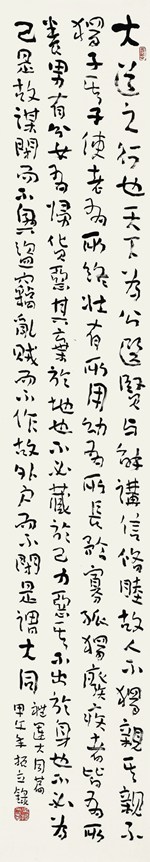 大道之行也天下為公選賢与能講信脩睦故人不獨親其親不
獨子其子使老有所終壯有所用幼有所長矜寡孤獨廢疾者皆有所
養男有分女有歸貨惡其棄於地也不必藏於己力惡其不出於身也不必為
己是故謀閉而不興盜竊亂賊而不作故外戶而不閉是謂大同
禮運大同篇
甲午年振立錄